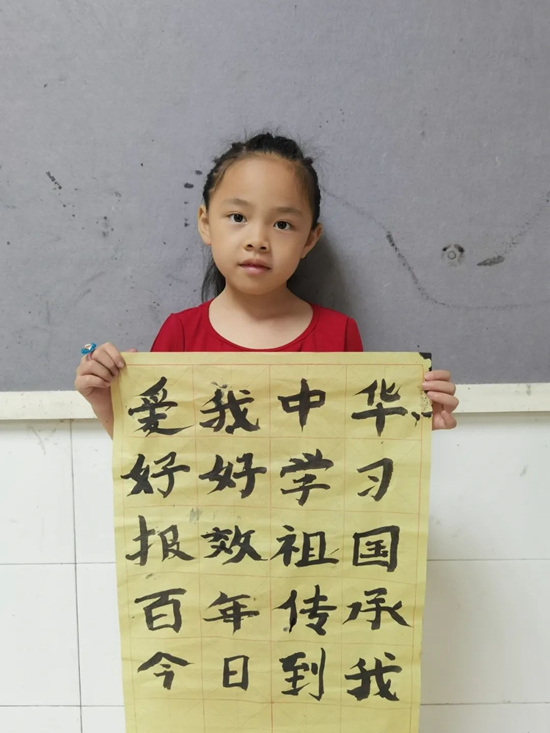 爱我中华
好好学习
报效祖国
百年传承
今日到我